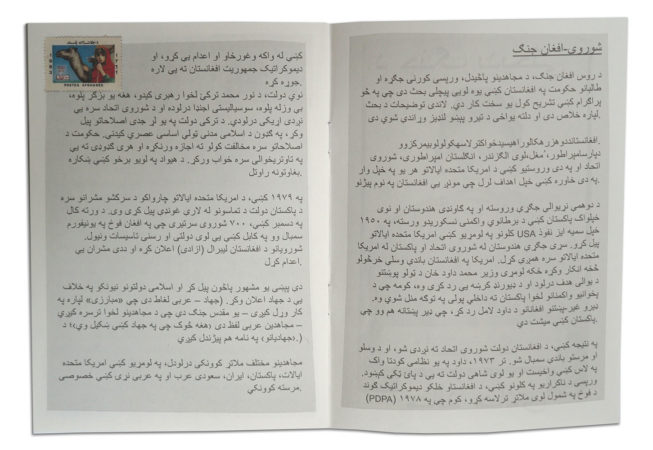 شوروی-افغان جنګ
د روس افغان جنګ، د مجاهدينو پاڅېدل، ورپسې کورنی جګړه او
طالبانو حکومت په افغانستان کښې يوه لويې پيچلې بحث دی چې په څو
پراګرام کښې تشريح کول يو سخت کار دي. لاندې توضيحات د بحث
لپاره خلاص دی او دلته يواځې د تېرو پېښو لنډيز وړاندې شوي دي.
دپارسامپراطور، ُمغل،لوی الګزندر، انګلستان امپراطوری، شوروی
اتحاد او په دې وروستيو کښې د امريکا متحده ايالاتو هر يو په خپل وار
په دې خاوره کښې خپل اهداف لرل چې مونږ يې افغانستان په نوم پېژنو.
د دوهمې نړيوالې جګړې وروسته او په ګاونډي هندوستان او نوی
خپلواک پاکستان کښې د برطانوي واکمنۍ نسکوريدو ورسته، په ۱۹۵۰
کلونو په لومړيو کښې امريکا متحده ايالاتو USA خپل سمبه ايز نفوذ
پيل کړو. سرې جګړې هندوستان له شوروی اتحاد او پاکستان له امريکا
متحده ايالاتو سره همږي کړل. امريکا په افغانستان باندې وسلې خرڅولو
څخه انکار وکړه ځکه لومړی وزير محمد داود خان د ټولو پوښتنو
د يوالي هدف درلود او د ډيورنډ کرښه يې رد کړی وه، کومه چې د
پخوانيو واکمنانو لخوا پاکستان ته داخلي پولې په توګه منل شوې وه.
ډېرو غير-پښتنو افغانانو د داود لامل رد کړ، چې ډېر پښتانه هم وو چې
پاکستان کښې مېشت دي.
په نتيجه کښې، د افغانستان دولت شوروی اتحاد ته نږدې شو، او د وسلو
او مرستو باندې سمبال شو. تر ۱۹۷۳، داود په يو نظامي کودتا واک
په لاس کښې واخيست او يو لوی شاهي دولت ته يې د پائ ټکی کېښود.
ورپسې د ناکراريو په کلونو کښې، د افغانستاو خلکو ديموکراټيک ګوند
(PDPA) د فوځ په شمول لوی ملاتړ ترلاسه کړو، کوم چې په ۱۹۷۸
کښې له واکه وغورځاو او اعدام يې کړو، او
ديموکراټيک جمهوريت افغانستان ته يې لاره
جوړه کړه.
نوي دولت، د نور محمد ترکئ لخوا رهبری کېدو، هغه يو بزګر پلوه،
بې وزله پلوه، سوسياليسټي اجنډا درلوده او د شوروی اتحاد سره يې
نږدې اړيکې درلودې. د ترکي دولت په يو لړ جدي اصلاحاتو پيل
وکړ، په ګډون د اسلامي مدنې ټولې اساسي عصري کېدنې. حکومت د
اصلاحاتو سره مخالفت کولو ته اجازه ورنکړه او هرې ګډوډۍ ته يې
په تاوتريخوالي سره ځواب ورکړ. د هېواد په لويو برخو کښې ښکاره
بغاوتونه راوتل.
په ۱۹۷۹ کښې، د امريکا متحده ايالاتو چارواکو د سرکشو مشرانو سره
د پاکستان دولت د تماسونو له لارې غونډې پيل کړی وی. د ورته کال
په دسمبر کښې، ۷۰۰ شوروي سرتېري چې په افغان فوځ په يونيفورم
سمبال وو په کابل کښې يې لوی دولتي او رسنۍ تاسيسات ونيول.
شورويانو د افغانستان ليبرال (ازادی) اعلان کړه او ددې مشران يې
اعدام کړل.
دې پيښې يو مشهور پاڅون پيل کړ او اسلامي دولتونو نيونکو په خلاف
يې د جهاد اعلان وکړ. (جهاد – عربي لفظ دی چې «مبارزی» لپاره په
کار وړل کېږي – يو مقدس جنګ دی چې د مجاهدينو لخوا ترسره کېږي
– مجاهدين عربي لفظ دی (هغه څوک چې په جهاد کښې ښکيل وي)؛ د
«جهاديانو» په نامه هم پېژندل کېږي.)
مجاهدينو مختلف ملاتړ کوونکي درلودل، په لومړيو کښې امريکا متحده
ايالات، پاکستان، ايران، سعودی عرب او په عربي نړۍ کښې خصوصي
مرسته کوونکي.
POSTES AFGHANES